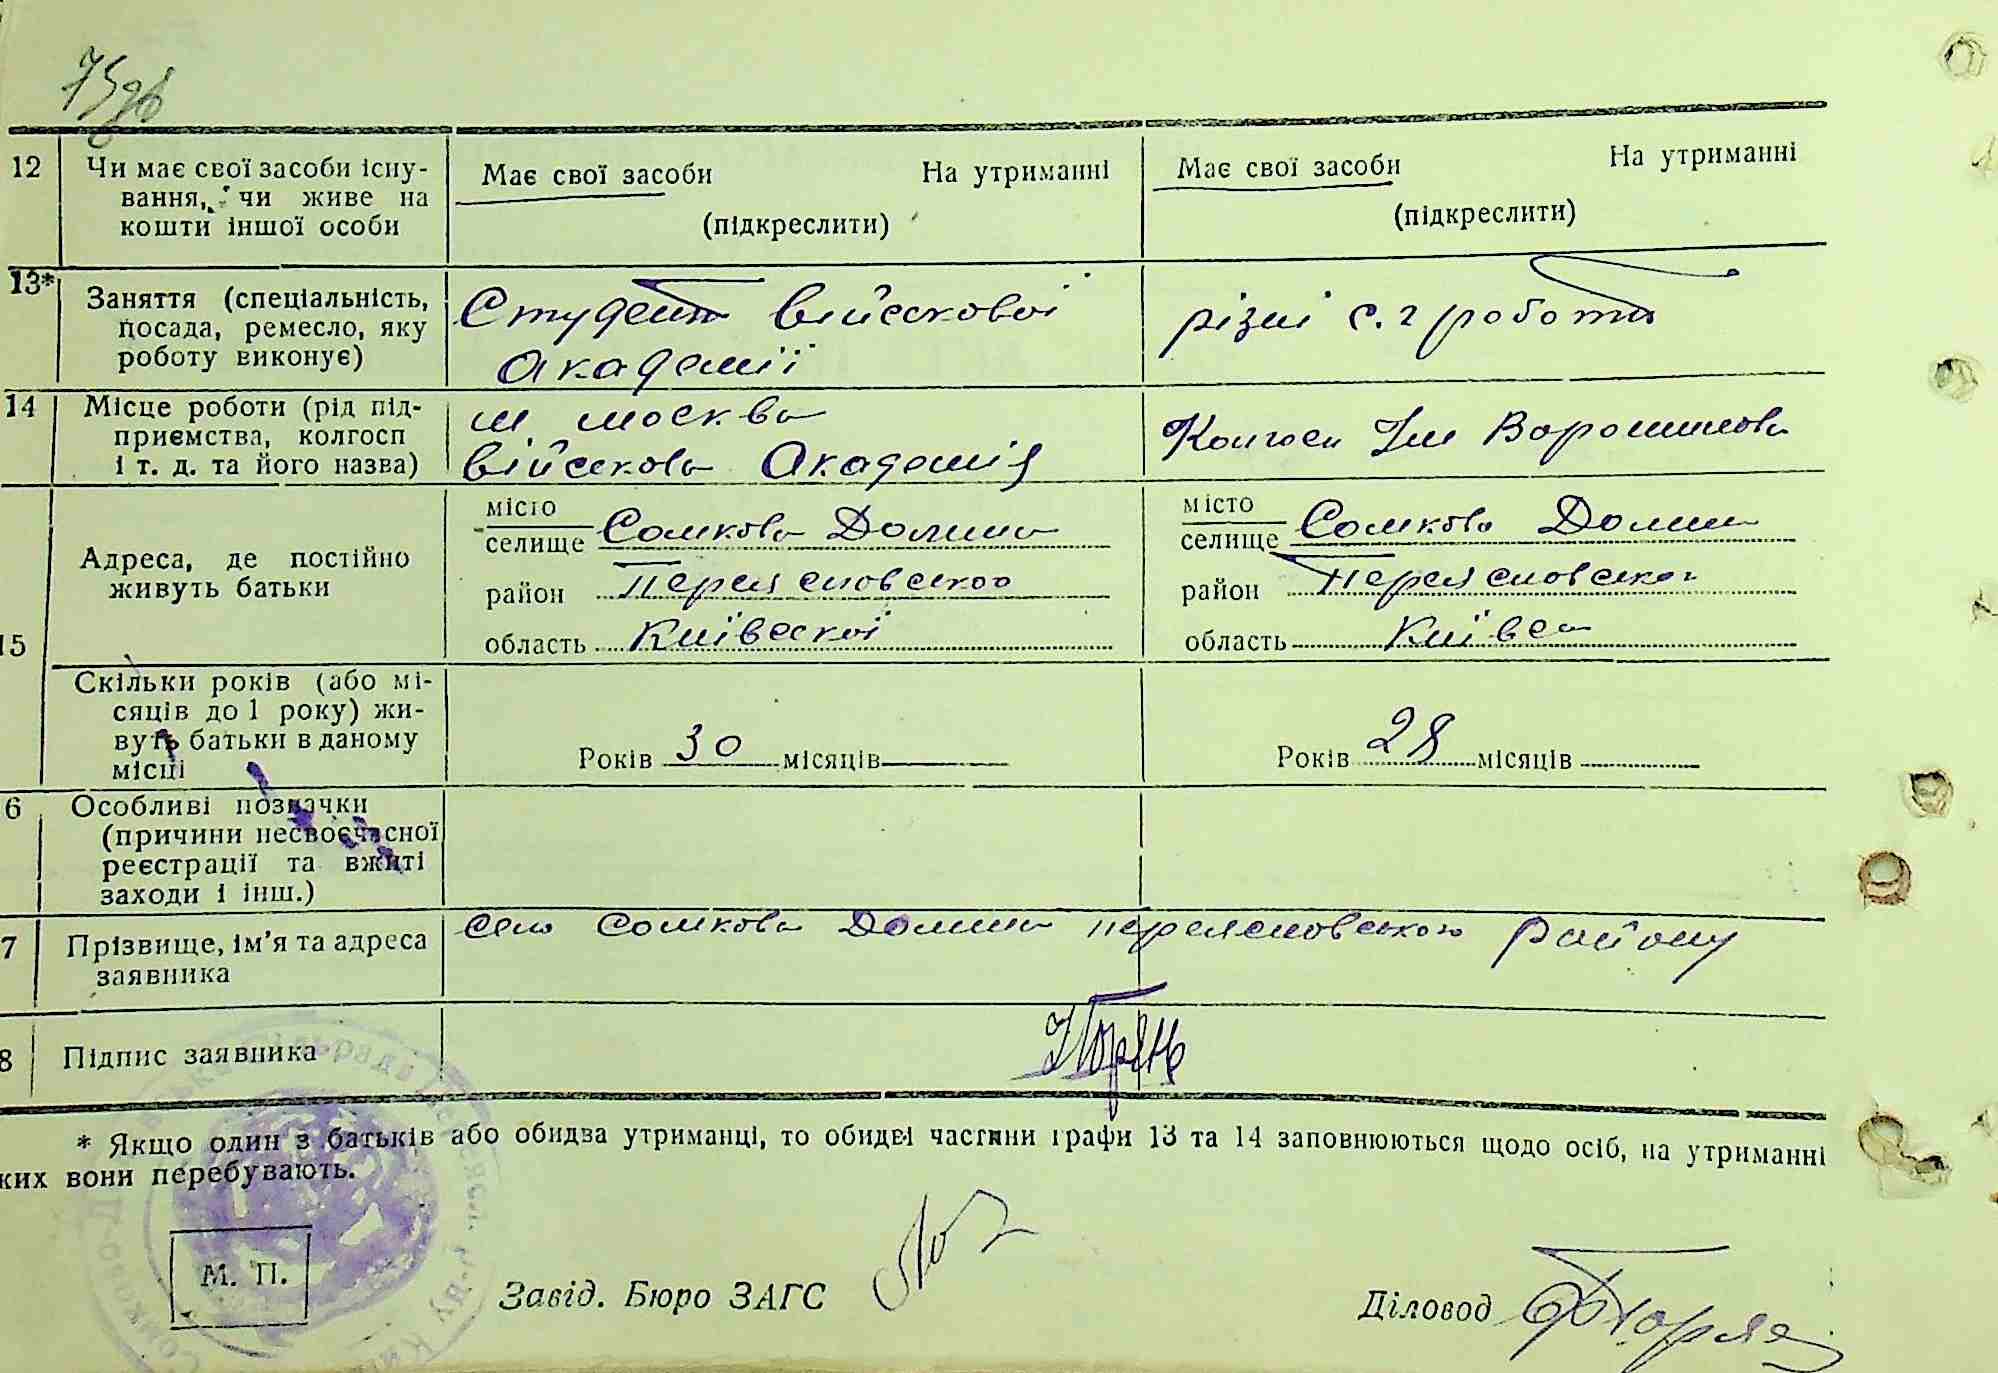 12 Чи має свої засоби існу-
вання, чи живе на
кошти іншої особи
Має свої засоби На утриманні
(підкреслити)
Має свої засоби На утриманні
(підкреслити)
13* Заняття (спеціальність,
посада, ремесло, яку
роботу виконує)
Студент військової
Академії
різні с.г роботи
14 Місце роботи (рід під-
приємства, колгосп
і т. д. та його назва)
м москва
військова Академія
Колгосп Ім Ворошилова
15 Адреса, де постійно
живуть батьки
місто
селище Сомкова Долина
район Переяславського
область Київської
місто
селище Сомкова Долина
район Переяславського
область Київсь
Скільки років (або мі-
сяців до 1 року) жи-
вуть батьки в даному
місці
Років 30 місяців
Років 28 місяців
6 Особливі позначки
(причини несвоєчасної
реєстрації та вжиті
заходи і інш.)
7 Прізвище, ім'я та адреса
заявника
село Сомкова Долина переяславського району
8 Підпис заявника
* Якщо один з батьків або обидва утриманці, то обидві частини графи 13 та 14 заповнюються щодо осіб, на утриманні
ких вони перебувають.
М. П.
Завід. Бюро ЗАГС
Діловод